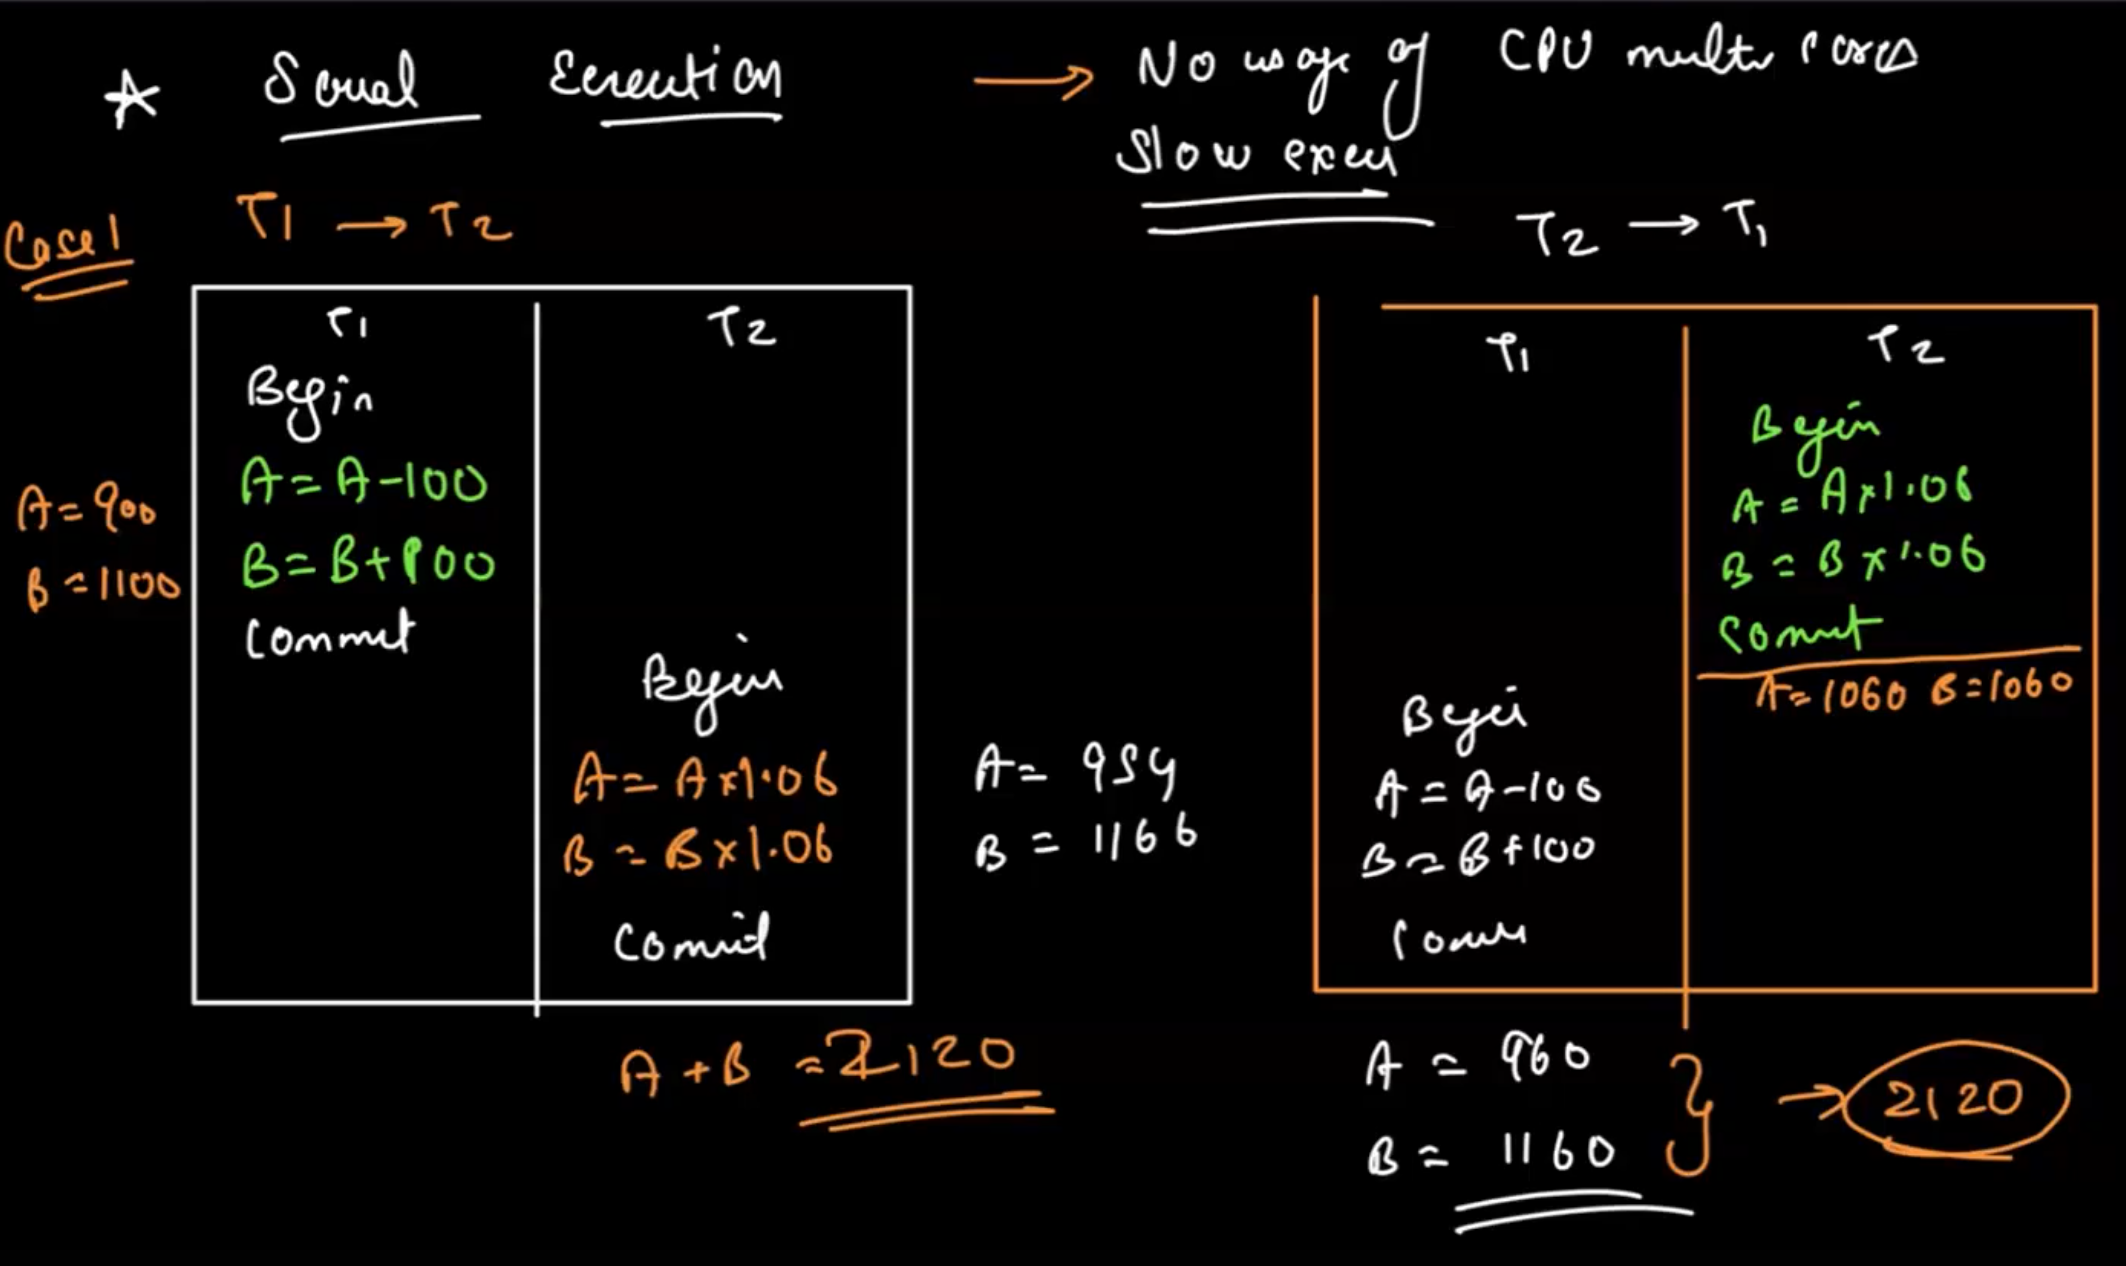 ★ Serial Execution → No usage of CPU multi cores
Slow execu
Case 1
T1 → T2
T1 T2
Begin
A = A-100
B = B+100
Commit
A = 900
B = 1100
Begin
A = A×1.06
B = B×1.06
Commit
A = 954
B = 1166
A + B = 2120
T2 → T1
T1 T2
Begin
A = A×1.06
B = B×1.06
Commit
A = 1060 B = 1060
Begin
A = A-100
B = B+100
Comm
A = 960
B = 1160
} → 2120